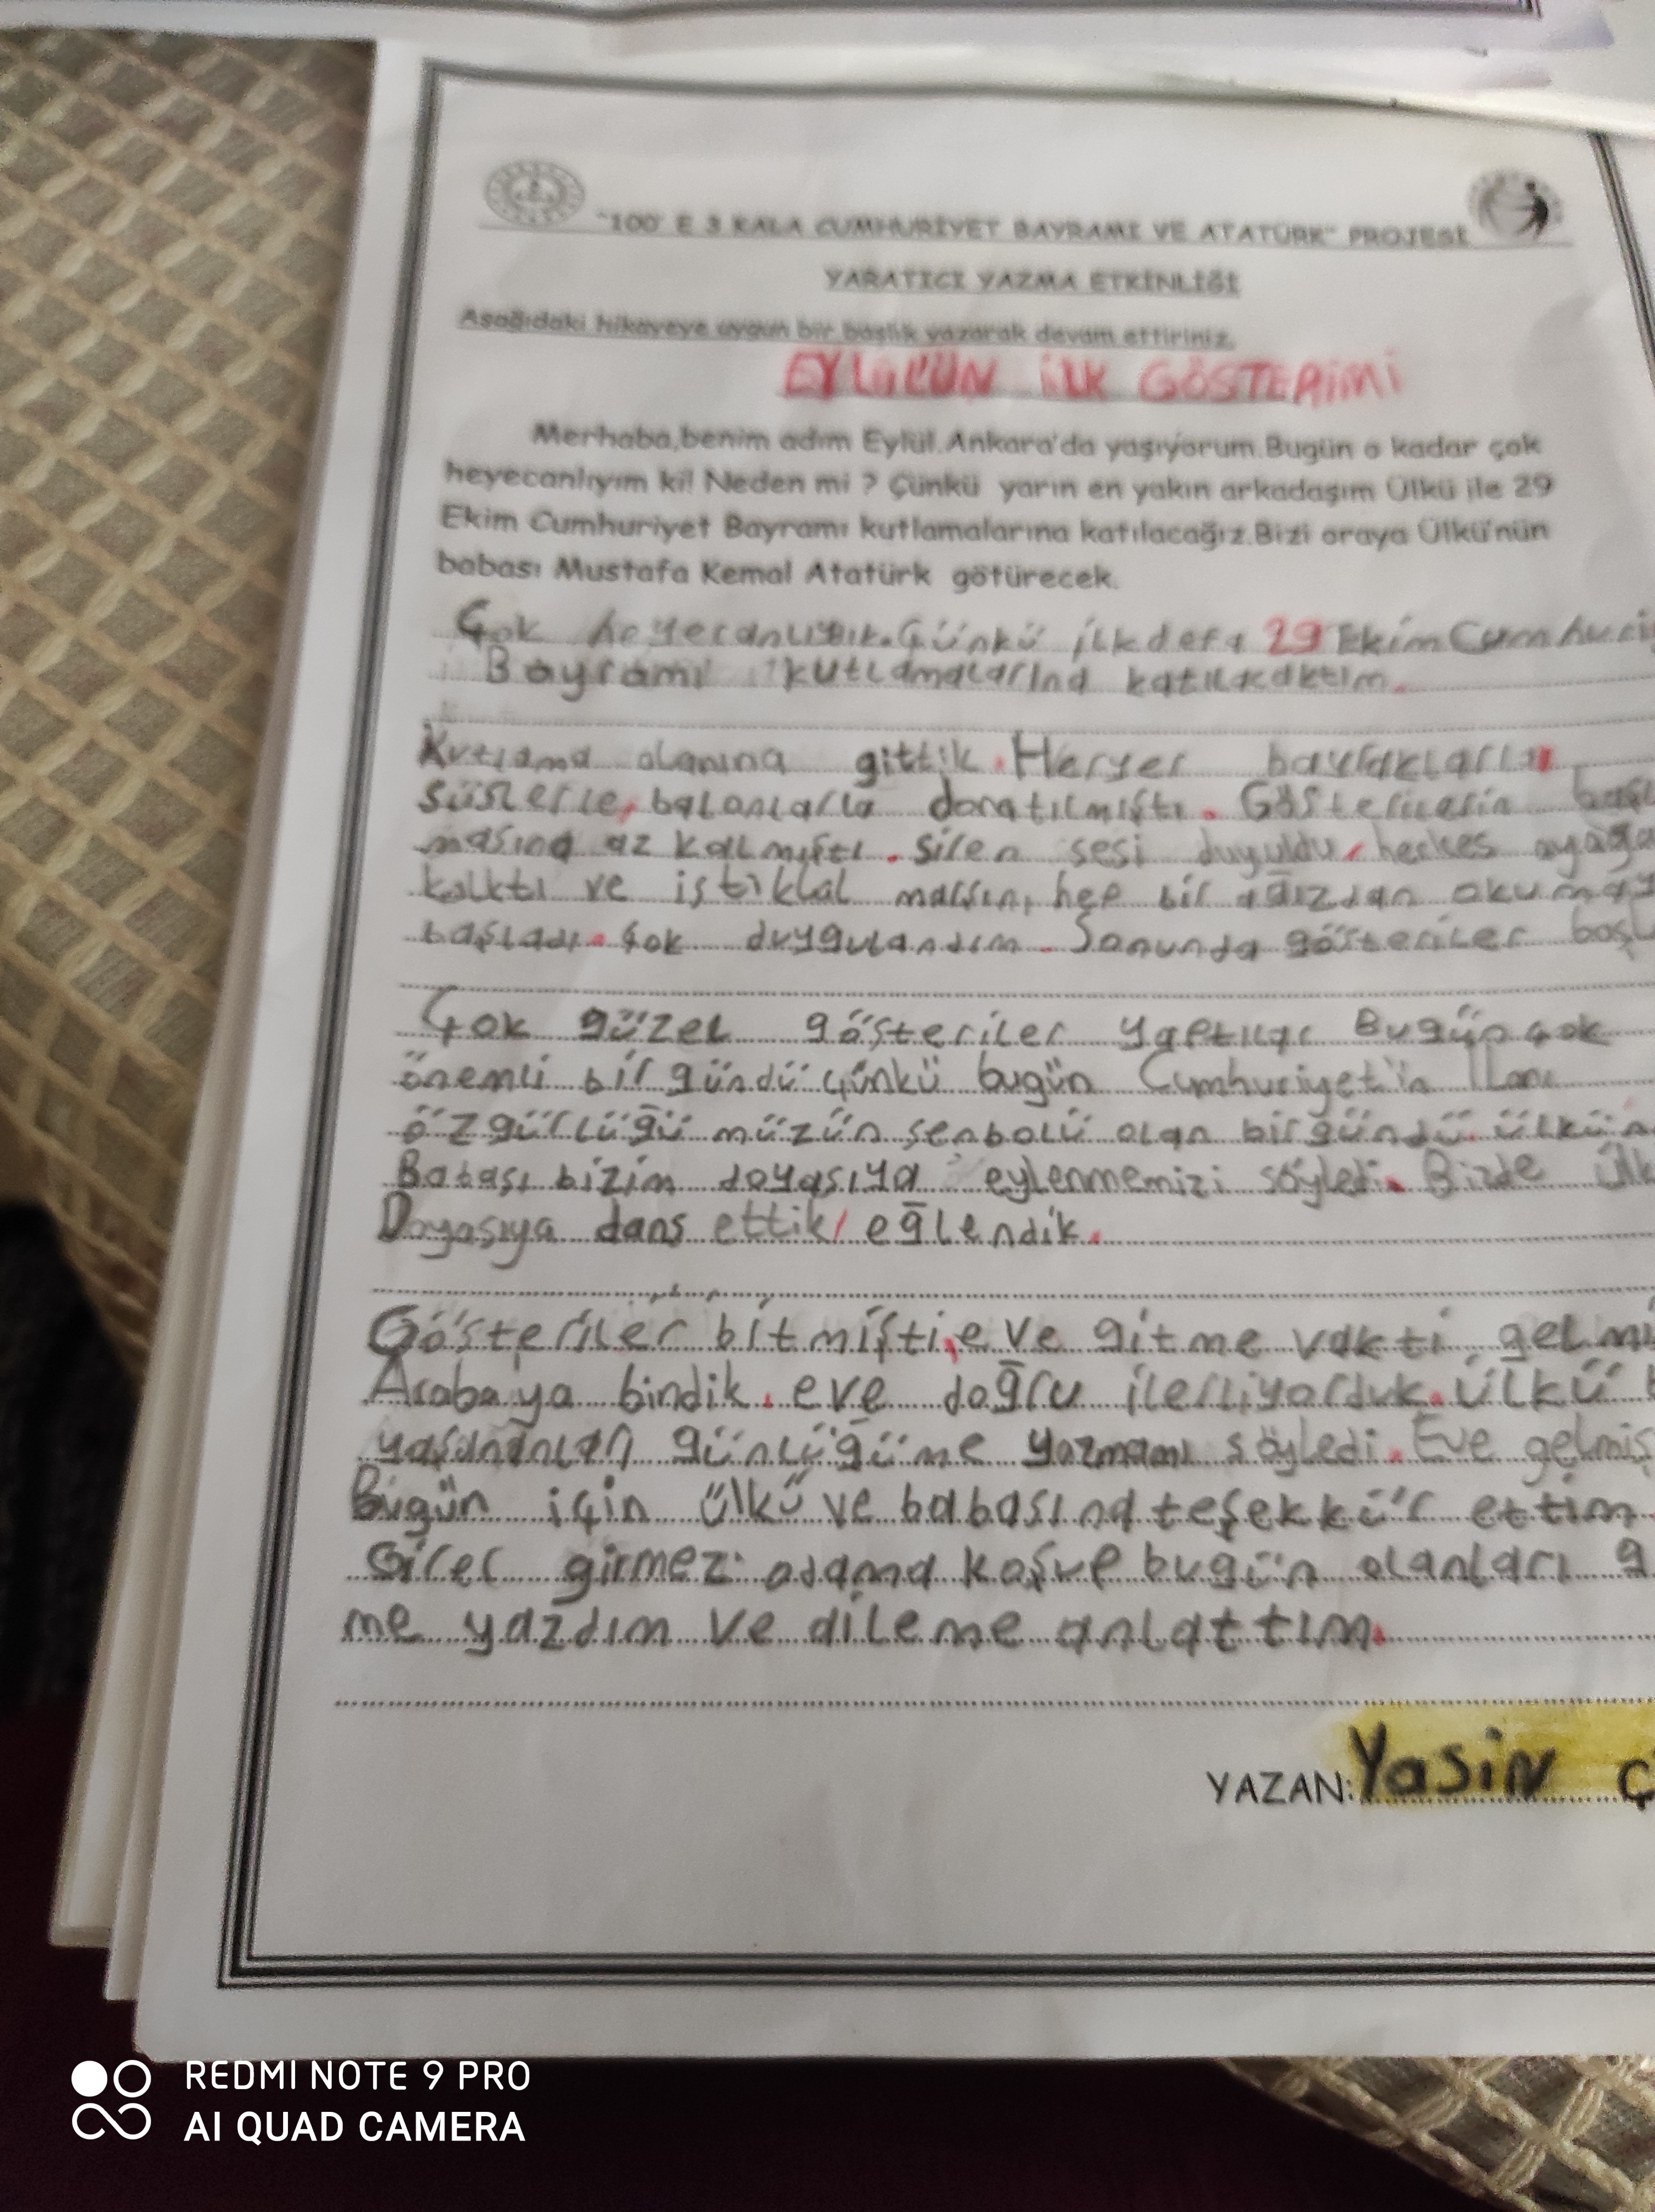 "100' E 3 KALA CUMHURİYET BAYRAMI VE ATATÜRK" PROJESİ
YARATICI YAZMA ETKİNLİĞİ
Aşağıdaki hikayeye uygun bir başlık yazarak devam ettiriniz.
EYLÜL'ÜN İLK GÖSTERİMİ
Merhaba,benim adım Eylül.Ankara'da yaşıyorum.Bugün o kadar çok
heyecanlıyım ki! Neden mi ? Çünkü yarın en yakın arkadaşım Ülkü ile 29
Ekim Cumhuriyet Bayramı kutlamalarına katılacağız.Bizi oraya Ülkü'nün
babası Mustafa Kemal Atatürk götürecek.
Çok Çünkü ilk defa 29 Ekim Cumhuri
Bayramı kutlamalarına katılacaktım.
Kutlama alanına gittik. Heryer bayraklarla
süslerle, balonlarla donatılmıştı. Gösterilerin başl
masına az kalmıştı. siren sesi duyuldu, herkes ayağa
kalktı ve istiklal marşını hep bir ağızdan okumay
başladı. Çok duygulandım. Sonunda gösteriler başl
Çok güzel gösteriler yaptılar Bugün çok
önemli bir gündü çünkü bugün Cumhuriyet'in ilanı
özgürlüğü müzün senbolü olan bir gündü. ülkün
Babası bizim doyasıya eylenmemizi söyledi. Bizde Ülk
Doyasıya dans ettik, eğlendik.
Gösteriler bitmişti, eve gitme vakti gelmi
Arabaya bindik. eve doğru ilerliyorduk. ülkü
günlüğüme yazmamı söyledi. Eve gelmiş
Bugün için ülkü ve babasına teşekkür ettim.
Girer girmez odama bugün olanları g
me yazdım ve aileme anlattım.
YAZAN: Yasin Ç
REDMI NOTE 9 PRO
AI QUAD CAMERA